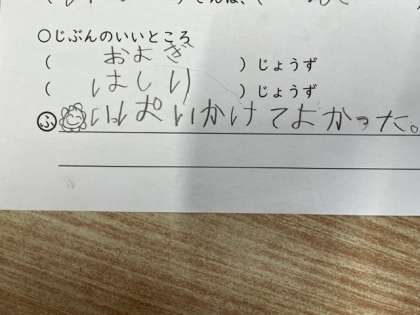 ○じぶんのいいところ
( およぎ ) じょうず
( はしり ) じょうず
ふ いっぱいかけてよかった。